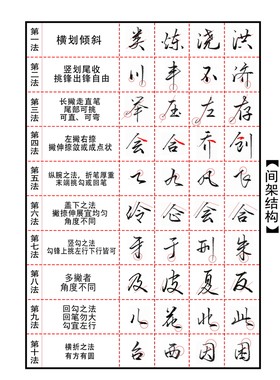 第一法 横划倾斜 类 炼 浇 洪
第二法 竖划尾收
挑锋出锋自由 川 丰 不 济
第三法 长撇走直笔
尾部可挑
可直、可弯 举 压 左 存
第四法 左撇右捺
撇伸捺敛或成点状 会 合 乔 创
第五法 纵腕之法，折笔厚重
末端挑勾或回笔 飞 凡
第六法 盖下之法
撇捺伸展宜均匀
角度不同 冷 企 会 合
第七法 竖勾之法
勾锋上挑左行下行皆可 于 刑 朱
第八法 多撇者
角度不同 及 皮 夏 反
第九法 回勾之法
回笔勿大
勾宜左行 儿 花 北 此
第十法 横折之法
有方有圆 台 西 因 困
【间架结构】